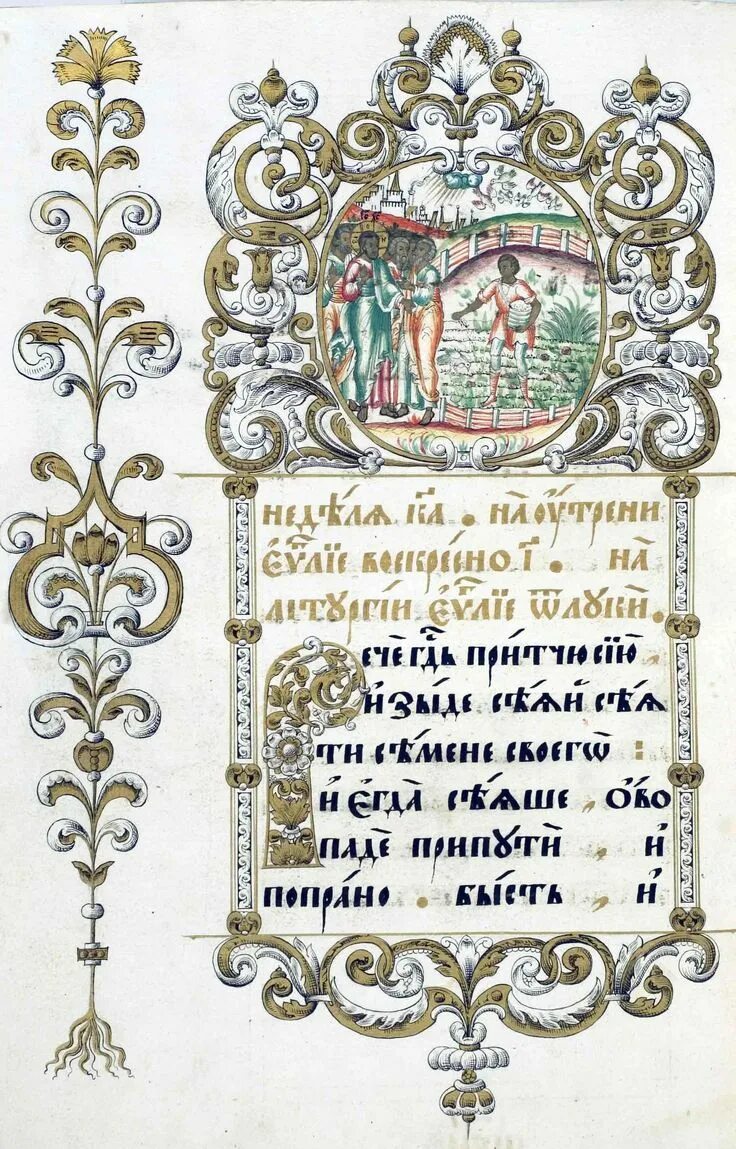 І҃С Х҃С
недѣ́лѧ к҃а . на̀ оу҆́трени
є҆ѵⷢ҇лїе воскре́сно і҃ . на̀
лїтꙋргі́и є҆ѵⷢ҇лїе ѿ лꙋкѝ .
Речѐ гдⷭ҇ь при́тчю сїю̀ ,
и҆зы́де сѣ́ѧй сѣ́ѧ
ти сѣ́мене своегѡ̀ :
и҆ є҆гда̀ сѣ́ѧше , о́во
падѐ при пꙋтѝ , и҆
попра́но . бы́сть , и҆